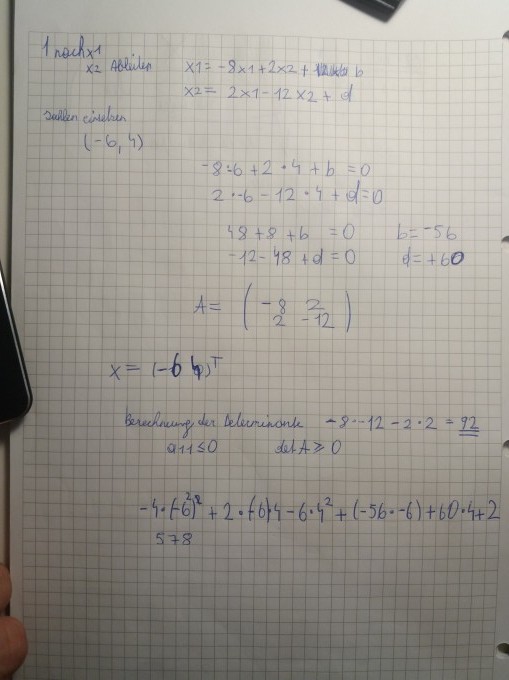 1 nach x1
x2 Ableiten
x1 = -8x1 + 2x2 + b
x2 = 2x1 - 12x2 + d
Zahlen einsetzen
(-6, 4)
-8·-6 + 2·4 + b = 0
2·-6 - 12·4 + d = 0
48 + 8 + b = 0 b = -56
-12 - 48 + d = 0 d = +60
A = ( -8 2
2 -12 )
x = (-6 4)ᵀ
Berechnung der Determinante -8·-12 - 2·2 = 92
a11 ≤ 0 det A ≥ 0
-4·(-6)² + 2·(-6)·4 - 6·4² + (-56·-6) + 60·4 + 2
578